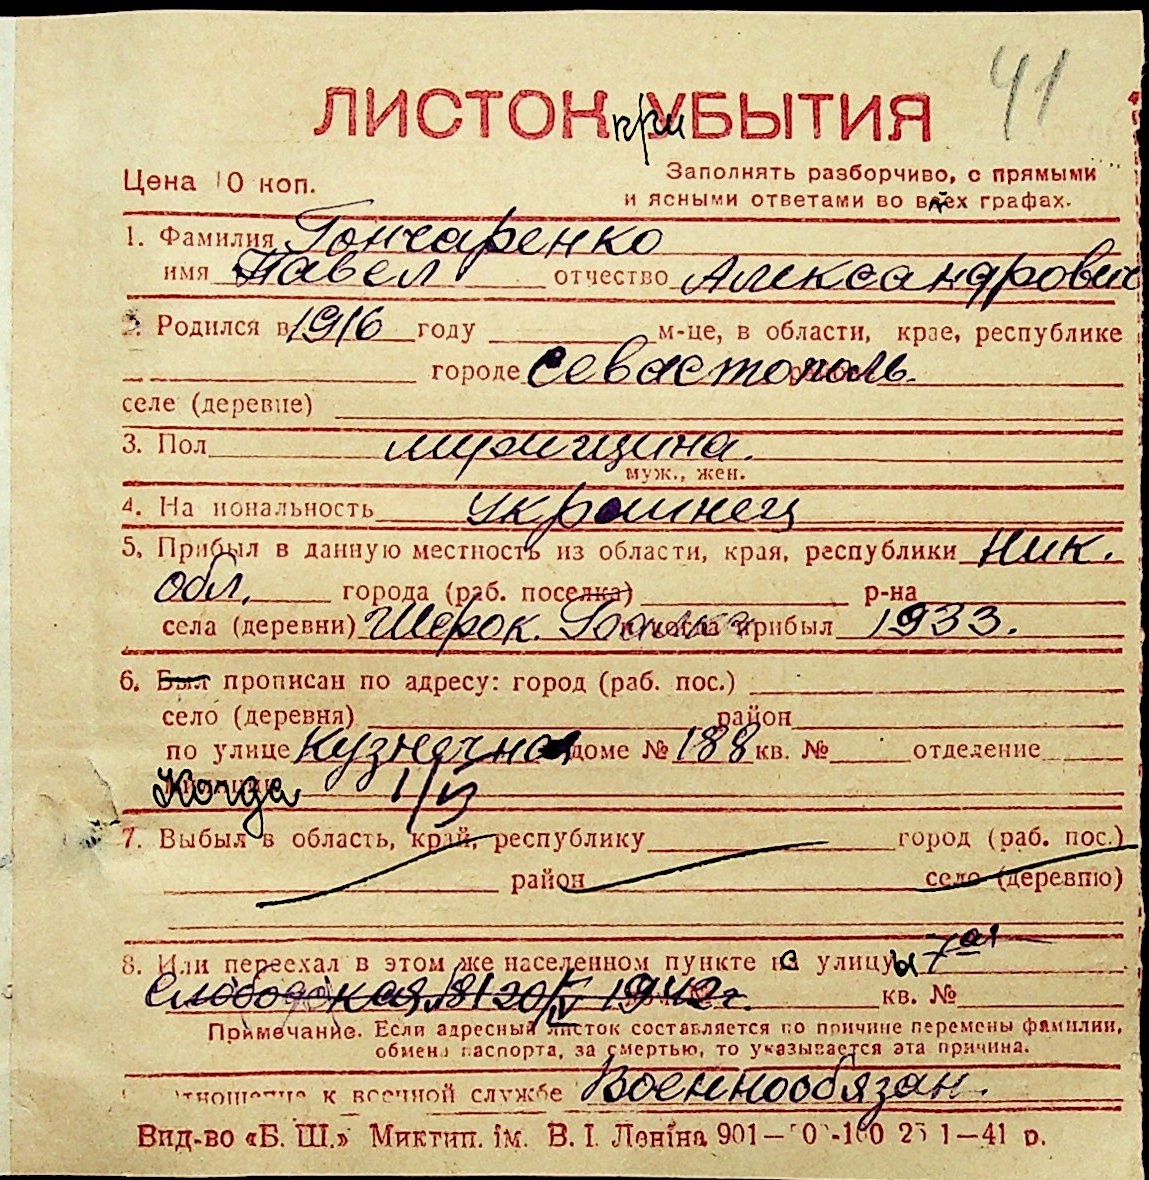 41
ЛИСТОК при УБЫТИЯ
Цена 10 коп.
Заполнять разборчиво, с прямыми
и ясными ответами во всех графах.
1. Фамилия Гончаренко
имя Павел отчество Александрович
2. Родился в 1916 году м-це, в области, крае, республике
городе Севастополь.
селе (деревне)
3. Пол мужщина.
муж., жен.
4. Национальность украинец
5. Прибыл в данную местность из области, края, республики Ник.
обл. города (раб. поселка) р-на
села (деревни) Широк. Балка и когда прибыл 1933.
6. Был прописан по адресу: город (раб. пос.)
село (деревня) район
по улице Кузнечная доме № 188 кв. № отделение
Когда 1/VI
7. Выбыл в область, край, республику город (раб. пос.)
район село (деревню)
8. Или переехал в этом же населенном пункте на улицу 7ая
Слободская, 81 20/IV 1942 г. кв. №
Примечание. Если адресный листок составляется по причине перемены фамилии,
обмена паспорта, за смертью, то указывается эта причина.
отношение к военной службе Военнообязан.
Вид-во «Б. Ш.» Миктип. ім. В. І. Леніна 901— 1—41 р.